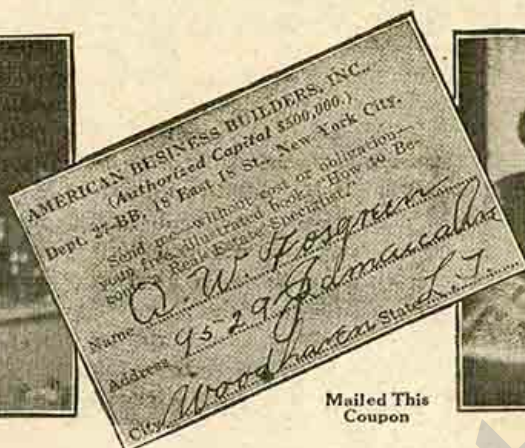 AMERICAN BUSINESS BUILDERS, INC.,
(Authorized Capital $500,000.)
Dept. 27-BB, 18 East 18 St., New York City.
Send me—without cost or obligation—
your free, illustrated book, "How to Be-
come a Real Estate Specialist."
Name A. W. Fosgreen
Address 9529
City Woodhaven State L I.
Mailed This
Coupon